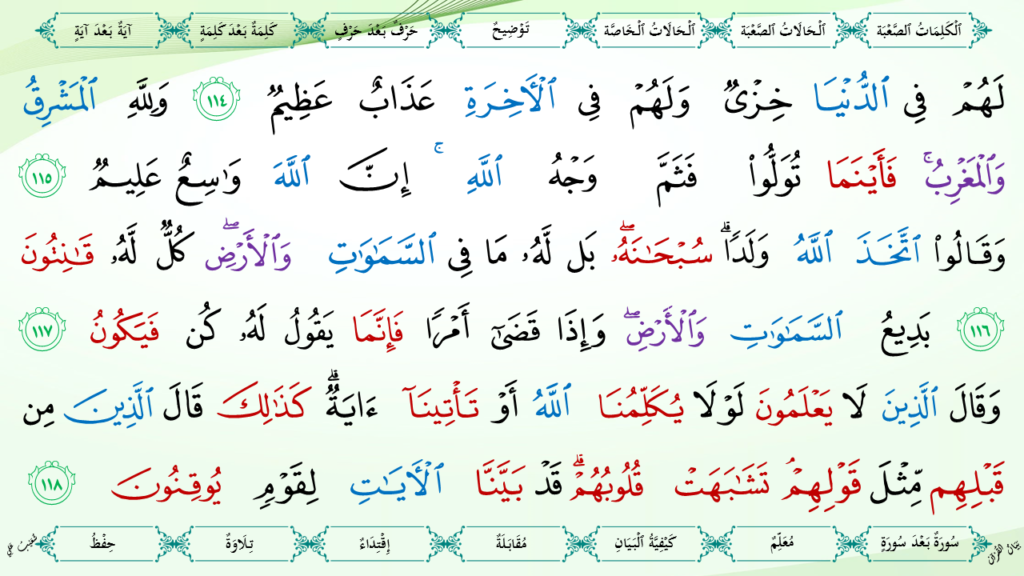 ٱلْكَلِمَاتُ الصَّعْبَة ٱلْحَالَاتُ الصَّعْبَة ٱلْحَالَاتُ الْخَاصَّة تَوْضِيحٌ حَرْفٌ بَعْدَ حَرْفٍ كَلِمَةٌ بَعْدَ كَلِمَةٍ آيَةٌ بَعْدَ آيَةٍ
لَهُمْ فِى ٱلدُّنْيَا خِزْىٌ وَلَهُمْ فِى ٱلْأَخِرَةِ عَذَابٌ عَظِيمٌ ١١٤ وَلِلَّهِ ٱلْمَشْرِقُ
وَٱلْمَغْرِبُ ۚ فَأَيْنَمَا تُوَلُّوا۟ فَثَمَّ وَجْهُ ٱللَّهِ ۚ إِنَّ ٱللَّهَ وَٰسِعٌ عَلِيمٌ ١١٥
وَقَالُوا۟ ٱتَّخَذَ ٱللَّهُ وَلَدًا ۗ سُبْحَٰنَهُۥ ۖ بَل لَّهُۥ مَا فِى ٱلسَّمَٰوَٰتِ وَٱلْأَرْضِ ۖ كُلٌّ لَّهُۥ قَٰنِتُونَ
١١٦ بَدِيعُ ٱلسَّمَٰوَٰتِ وَٱلْأَرْضِ ۖ وَإِذَا قَضَىٰٓ أَمْرًا فَإِنَّمَا يَقُولُ لَهُۥ كُن فَيَكُونُ ١١٧
وَقَالَ ٱلَّذِينَ لَا يَعْلَمُونَ لَوْلَا يُكَلِّمُنَا ٱللَّهُ أَوْ تَأْتِينَآ ءَايَةٌ ۗ كَذَٰلِكَ قَالَ ٱلَّذِينَ مِن
قَبْلِهِم مِّثْلَ قَوْلِهِمْ ۘ تَشَٰبَهَتْ قُلُوبُهُمْ ۗ قَدْ بَيَّنَّا ٱلْأَيَٰتِ لِقَوْمٍ يُوقِنُونَ ١١٨
سُورَةٌ بَعْدَ سُورَةٍ مُعَلِّمٌ كَيْفِيَّةُ الْبَيَانِ مُقَابَلَةٌ إِقْتِدَاءٌ تِلَاوَةٌ حِفْظٌ
بَيَانُ القُرْآن